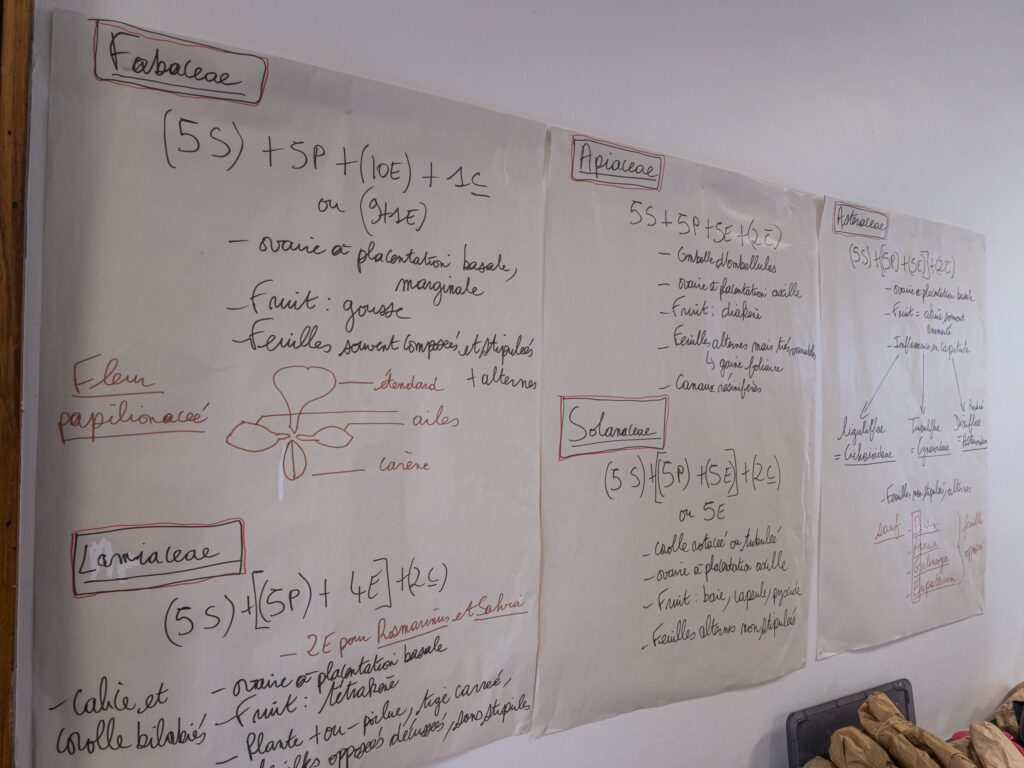 Fabaceae
(5S) + 5P + (10E) + 1C
ou (9+1E)
- ovaire à placentation basale,
marginale
- Fruit : gousse
- Feuilles souvent composées et stipulées
+ alternes
Fleur
papilionacée
étendard
ailes
carène
Lamiaceae
(5S) + [(5P) + 4E] + (2C)
- 2E pour Rosmarinus et Salvia
- Calice et
corolle bilabiés
- ovaire à placentation basale
- Fruit : tétrakène
- Plante + ou - poilue, tige carrée,
feuilles opposées décussées, sans stipules
Apiaceae
5S + 5P + 5E + (2C)
- Ombelle d'ombellules
- ovaire à placentation axille
- Fruit : diakène
- Feuilles alternes mais très variables
↳ gaine foliaire
- Canaux résinifères
Solanaceae
(5S) + [(5P) + (5E)] + (2C)
ou 5E
- corolle rotacée ou tubulée
- ovaire à placentation axille
- Fruit : baie, capsule, pyxide
- Feuilles alternes non stipulées
Asteraceae
(5S) + [(5P) + (5E)] + (2C)
- ovaire à placentation basale
- Fruit = akène souvent
- Inflorescence en capitule
Liguliflore
= Cichorioideae
Tubuliflore
= Cynaroideae
Radiée
= Asteroideae
- Feuilles non stipulées, alternes
sauf
Arnica
Eupatorium
feuilles
opposées